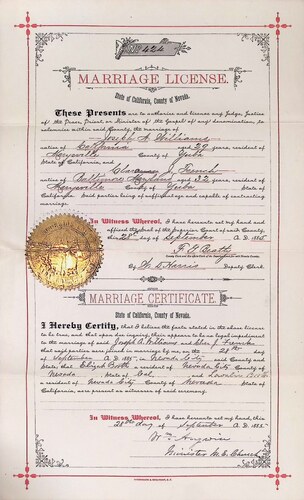 No. 424
MARRIAGE LICENSE.
State of California, County of Nevada.
These Presents are to authorize and license any Judge, Justice
of the Peace, Priest or Minister of the Gospel of any denomination, to
solemnize within said County, the marriage of
Joseph A. Williams
native of California aged 29 years, resident of
Marysville County of Yuba
State of California, and
J. French
native of Baltimore Maryland aged 32 years, resident of
Marysville County of Yuba State of
California. Said parties being of sufficient age and capable of contracting
marriage.
In Witness Whereof, I have hereunto set my hand and
affixed the seal of the Superior Court of said County, this
28th day of September A. D. 1885
F. G. Beatty
County Clerk and
By H. D. Harris Deputy Clerk.
MARRIAGE CERTIFICATE.
State of California, County of Nevada.
I Hereby Certify, that I believe the facts stated in the above license
to be true, and that upon due inquiry there appears to be no legal impediment
to the marriage of said Joseph A. Williams and
that said parties were joined in marriage by me, on the 28th day
of September A. D. 1885, in Nevada City said County and
State; that Elizah Booth a resident of Nevada City County of
Nevada State of Cal, and
a resident of Nevada City County of Nevada State of
California, are present as witnesses of said ceremony.
In Witness Whereof, I have hereunto set my hand, this
28th day of September A. D. 1885.
Wm. Angwin
Minister M. E. Church